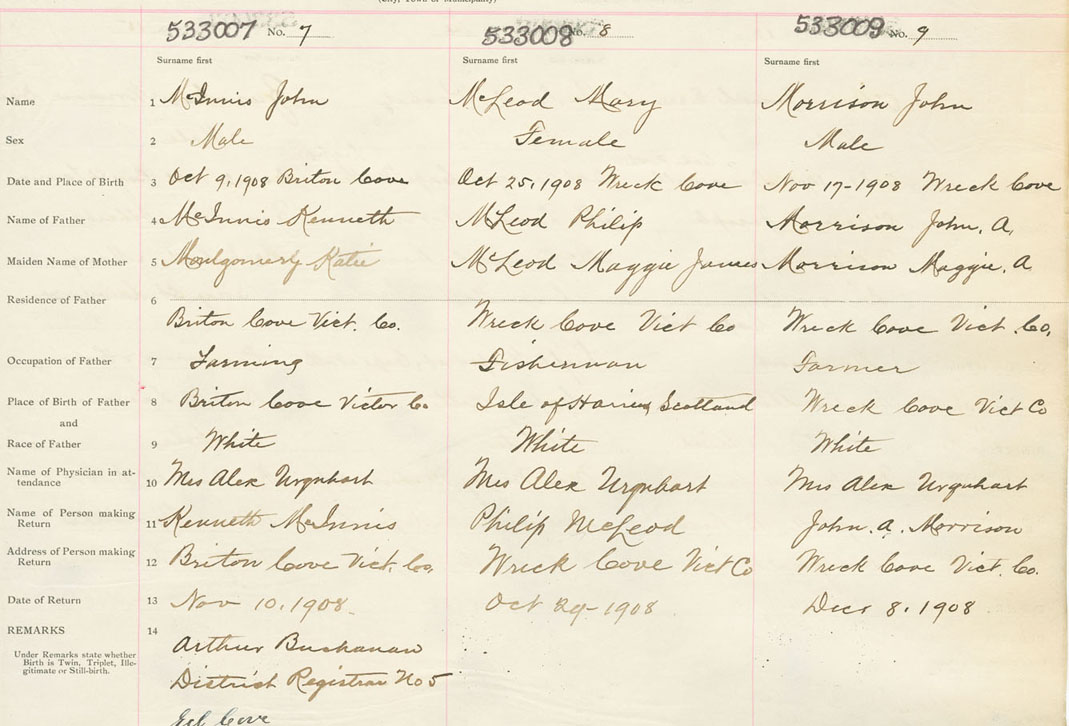 (City, Town or Municipality)
533007 No. 7 533008 No. 8 533009 No. 9
Surname first Surname first Surname first
Name 1 McInnis John McLeod Mary Morrison John
Sex 2 Male Female Male
Date and Place of Birth 3 Oct 9, 1908 Briton Cove Oct 25, 1908 Wreck Cove Nov 17-1908 Wreck Cove
Name of Father 4 McInnis Kenneth McLeod Philip Morrison John. A.
Maiden Name of Mother 5 Montgomery Katie McLeod Maggie James Morrison Maggie. A
Residence of Father 6
Briton Cove Vict. Co. Wreck Cove Vict Co Wreck Cove Vict. Co.
Occupation of Father 7 Farming Fisherman Farmer
Place of Birth of Father 8 Briton Cove Victor Co Isle of Harris Scotland Wreck Cove Vict Co
and
Race of Father 9 White White White
Name of Physician in at-
tendance 10 Mrs Alex Urquhart Mrs Alex Urquhart Mrs Alex Urquhart
Name of Person making
Return 11 Kenneth McInnis Philip McLeod John. A. Morrison
Address of Person making
Return 12 Briton Cove Vict. Co. Wreck Cove Vict Co Wreck Cove Vict. Co.
Date of Return 13 Nov 10, 1908. Oct 29-1908 Decr 8. 1908
REMARKS 14
Under Remarks state whether
Birth is Twin, Triplet, Ille-
gitimate or Still-birth.
Arthur Buchanan
District Registrar No 5
Eel Cove